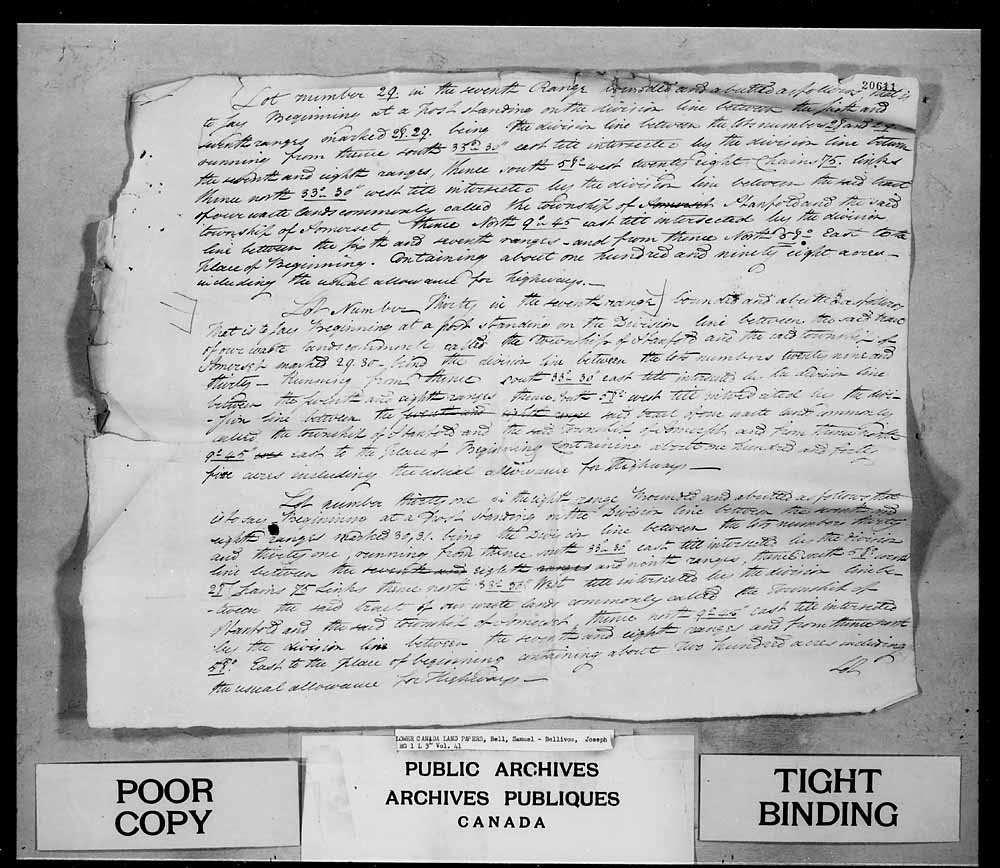 20611
Lot number 29 in the seventh Range bounded and abutted as follows, that is
to say Beginning at a Post standing on the division line between the sixth and
seventh ranges marked 28.29. being the division line between the lots numbers 28 and 29
running from thence south 33° 30" east till intersected by the division line between
the seventh and eighth ranges, thence south 58° west twenty eight Chains 75. links
thence north 33° 30" west till intersected by the division line between the said tract
of our waste lands commonly called the township of Somerset Stanfold and the said
township of Somerset, thence North 9° 45 east till intersected by the division
line between the sixth and seventh ranges - and from thence North 58° East to the
place of Beginning. Containing about one hundred and ninety eight acres -
including the usual allowance for highways. -
Lot Number Thirty in the seventh range bounded and abutted as follows
that is to say Beginning at a post standing on the Division line between the said tract
of our waste lands commonly called the township of Stanfold and the said township of
Somerset marked 29.30 - being the division line between the lots numbers twenty nine and
thirty - Running from thence south 33° 30" east till intersected by the division line
between the seventh and eighth ranges, thence South 58° west till intersected by the divi-
-sion line between the seventh and eighth range said tract of our waste land commonly
called the township of Stanfold and the said township of Somerset and from thence north
9° 45" east to the place of Beginning Containing about one hundred and forty
five acres including the usual allowance for Highways -
Lot number thirty one in the eighth range bounded and abutted as follows that
is to say Beginning at a post standing on the Division line between the seventh and
eighth ranges marked 30.31. being the Division line between the lots numbers thirty
and thirty one, running from thence south 33° 30 east till intersected by the division
line between the seventh and eighth ranges and ninth ranges, thence south 58° west
28 Chains 75 Links thence north 33° 30" West till intersected by the division line be-
-tween the said tract of our waste lands commonly called the Township of
Stanfold and the said township of Somerset, thence north 9° 45" east till intersected
by the division line between the seventh and eighth ranges and from thence north
58° East to the place of beginning containing about two hundred acres including
the usual allowance for Highways -
Lot
LOWER CANADA LAND PAPERS, Bell, Samuel - Bellivos, Joseph
RG 1 L 3" Vol. 41
POOR
COPY
PUBLIC ARCHIVES
ARCHIVES PUBLIQUES
CANADA
TIGHT
BINDING